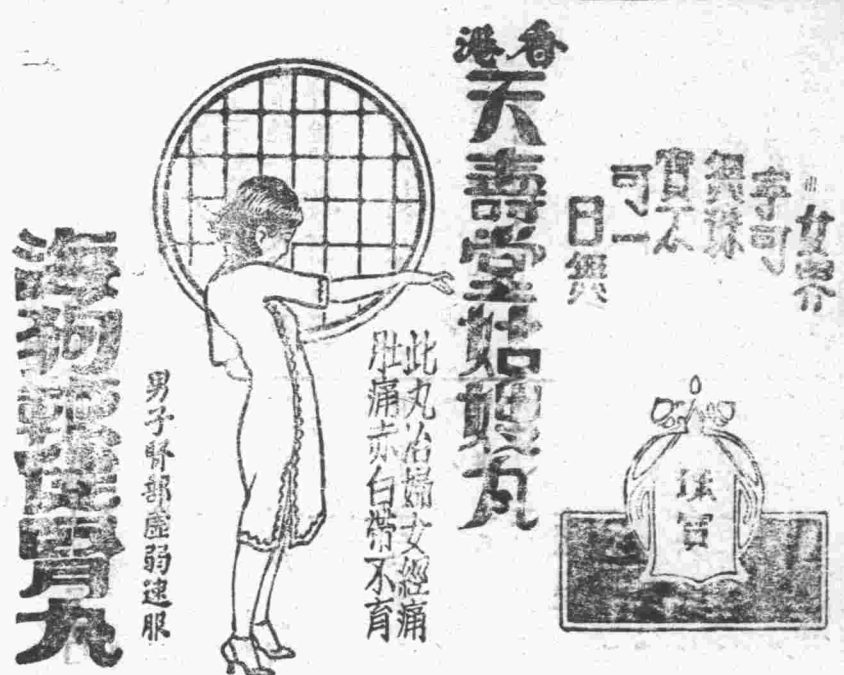 女界
寧可
無珠
寶不
可一
日無
珠寶
香港
天壽堂姑嫂丸
此丸治婦女經痛
肚痛赤白帶不育
男子腎部虛弱速服
海狗
健腎丸